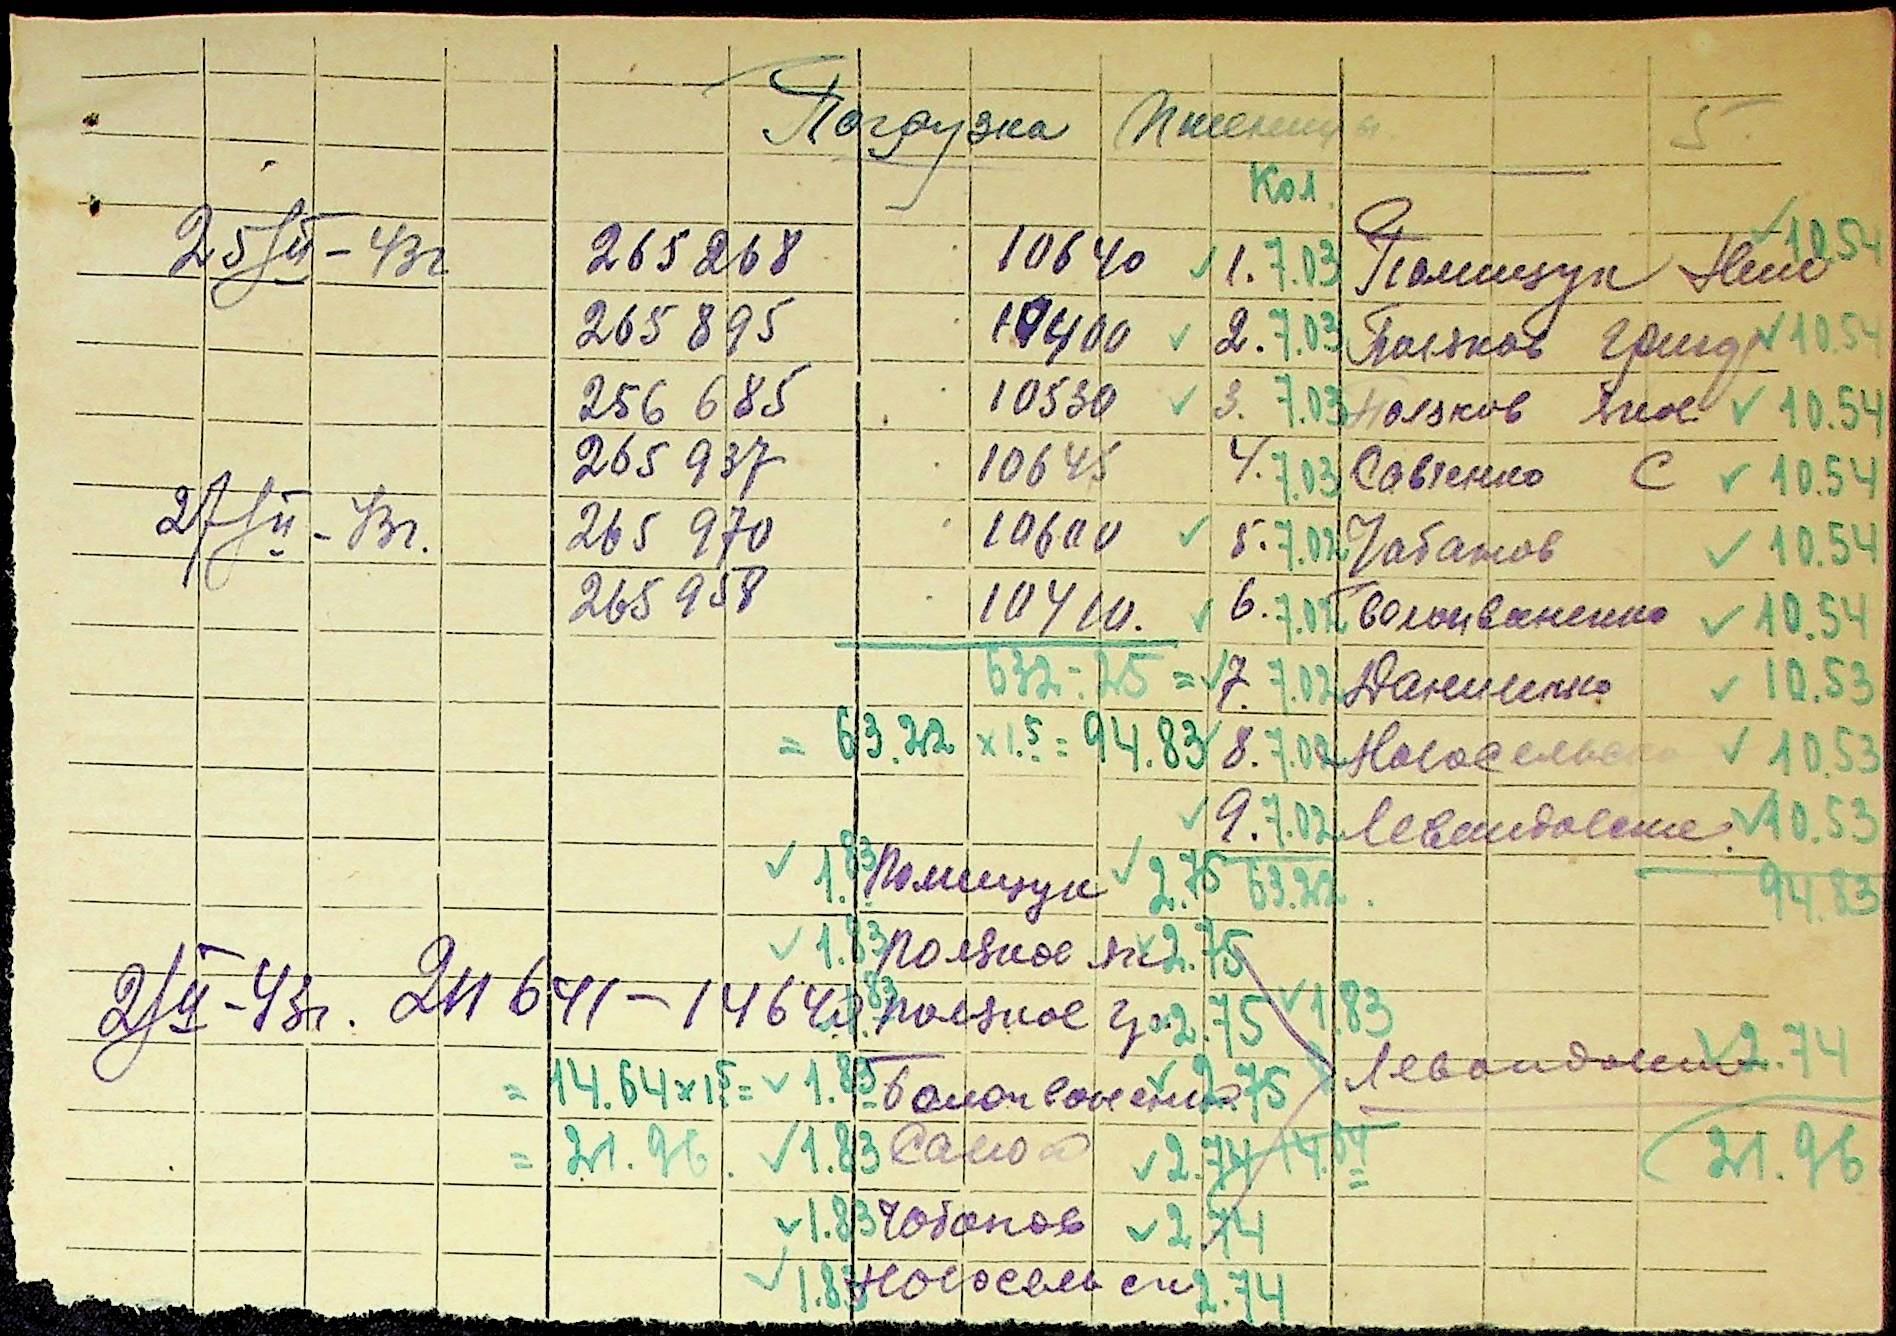 Погрузка Пшеницы 5.
Кол.
25/II-43г 265268 10640 ✓ 1. 7.03 Полищук ✓ 10.54
265895 10400 ✓ 2. 7.03 Поляков Григ ✓ 10.54
256685 10530 ✓ 3. 7.03 Поляков Як ✓ 10.54
265937 10645 4. 7.03 Савченко С ✓ 10.54
27/II-43г. 265970 10600 ✓ 5. 7.02 Чабанов ✓ 10.54
265958 10410. ✓ 6. 7.02 ✓ 10.54
632-25 = ✓ 7. 7.02 Даниленко ✓ 10.53
= 63.22 x 1.5 = 94.83 ✓ 8. 7.02 Новосельск ✓ 10.53
✓ 9. 7.02 Левандовск ✓ 10.53
✓ 1.83 Полищук ✓ 2.75 63.22. 94.83
✓ 1.83 Поляков Як ✓ 2.75
2/II-43г. 211641-14640 1.83 Поляков Гр 2.75 ✓ 1.83
Левандовск ✓ 2.74
= 14.64 x 1.5 = ✓ 1.83 ✓ 2.75
= 21.96. ✓ 1.83 ✓ 2.74 14.64 21.96
✓ 1.83 Чабанов ✓ 2.74
✓ 1.83 Новосельск 2.74